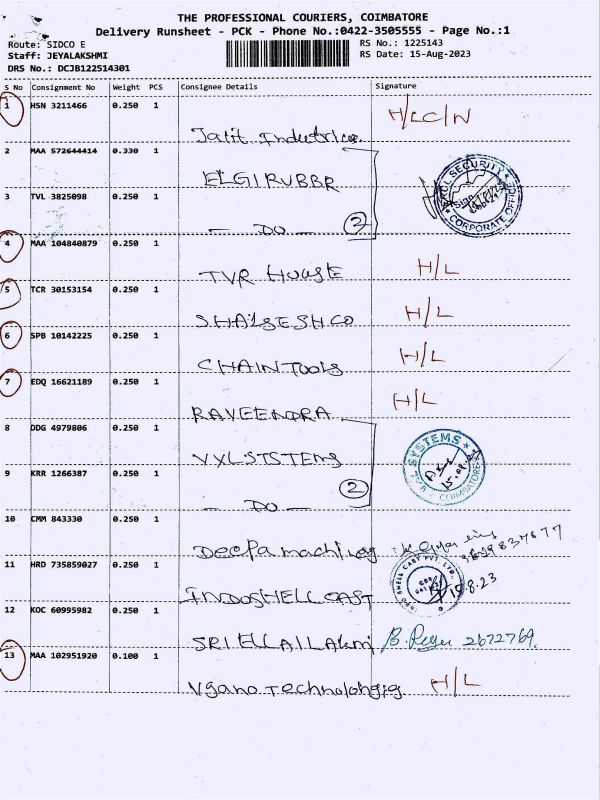 THE PROFESSIONAL COURIERS, COIMBATORE
Delivery Runsheet - PCK - Phone No.:0422-3505555 - Page No.:1
Route: SIDCO E
Staff: JEYALAKSHMI
DRS No.: DCJB122514301
RS No.: 1225143
RS Date: 15-Aug-2023
S No Consignment No Weight PCS Consignee Details Signature
1 HSN 3211466 0.250 1 H/LC/N
2 MAA 572644414 0.330 1
ELGIRUBBR
3 TVL 3825098 0.250 1
- DO - 2
SECURITY
CORPORATE OFFICE
4 MAA 104840879 0.250 1
TVR House H/L
5 TCR 30153154 0.250 1
SHAISESH CO H/L
6 SPB 10142225 0.250 1
CHAINTOOLS H/L
7 EDQ 16621189 0.250 1
RAVEENDRA H/L
8 DDG 4979806 0.250 1
VXLSTSTEMS
9 KRR 1266387 0.250 1
- DO - 2
SYSTEMS
COIMBATORE
10 CMM 843330 0.250 1
Deepa machinay
11 HRD 735859027 0.250 1
INDOSHELL CAST
INDO SHELL CAST PVT. LTD.,
15.8.23
12 KOC 60995982 0.250 1
SRI ELLAI LAkmi
13 MAA 102951920 0.100 1
H/L